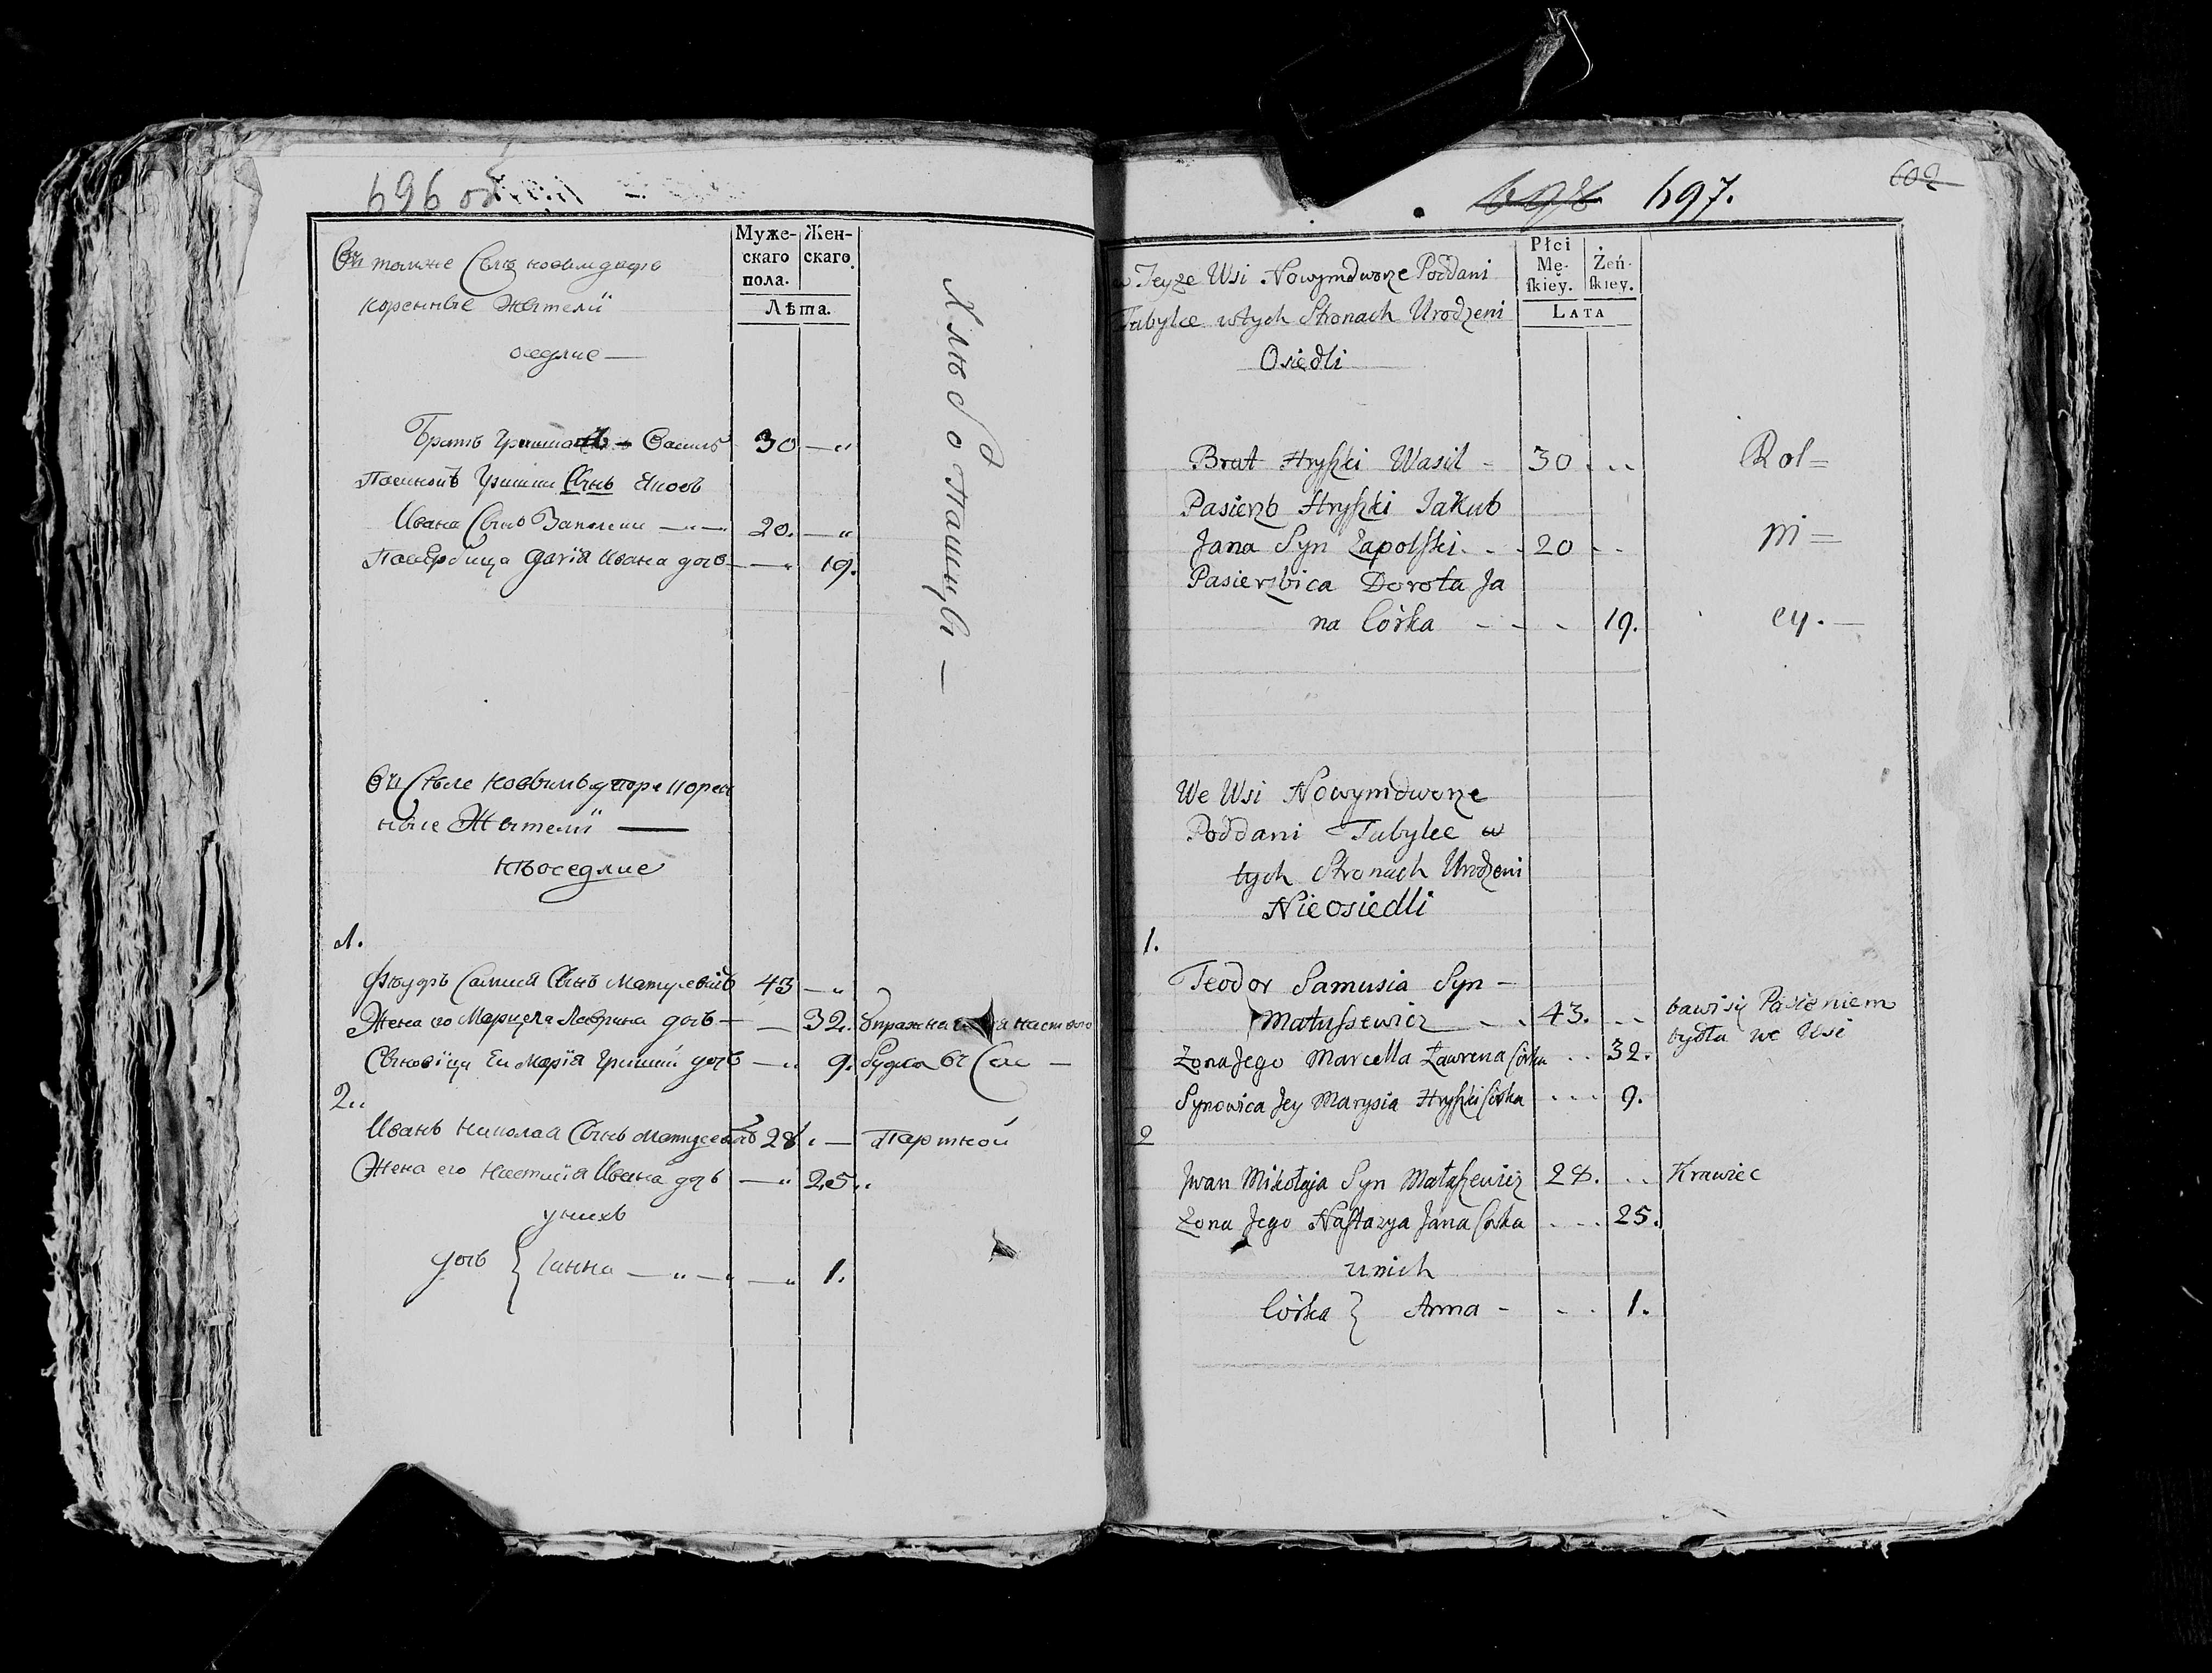 696 об
Муже-
скаго
пола.
Жен-
скаго.
Лѣта.
коренные Жители
оседлие —
Братъ Василь 30 — "
Пасинокъ Гришки Сынъ Яковъ
Ивана Сынъ Заполски — " — 20. — "
Ивана дочь — — " 19.
Хлѣбопашцы —
коренные Жители —
неоседлие
1.
Сынъ Матусевичъ 43 — "
Жена его Марцела Лаврина дочь — — 32.
Марія Гришки дочь — " 9.
2.
Иванъ Николая Сынъ Матусевичъ 28. — Партной
Жена его Настасія Ивана дочь — " 25.
у нихъ
дочь { Ганна — " — " — " 1.
698. 697.
602
Płci
Mę-
ſkiey.
Żeń-
ſkiey.
LATA
w Teyże Wsi Nowymdworze Poddani
Tubylce w tych Stronach Urodzeni
Osiedli
Brat Hryſzki Wasil - 30 . . . Rol=
Pasierzb Hryſzki Jakub
Jana Syn Zapolſki. . . 20 . . ni=
Pasierzbica Dorota Ja
na Córka - - - 19. cy. —
We Wsi Nowymdworze
Poddani Tubylce w
tych Stronach Urodzeni
Nieosiedli
1.
Teodor Samusia Syn -
Matuſsewicz - . 43. . . bawi się Pasieniem
bydła we Wsi
Żona Jego Marcella Ławrena Córka . . 32.
Synowica Jey Marysia Hryſzki Córka . . . 9.
2
Jwan Mikołaja Syn Matuſzewicz 28. . . Krawiec
Żona Jego Naſtazya Jana Córka . . . 25.
u nich
Córka } Anna - - . . 1.